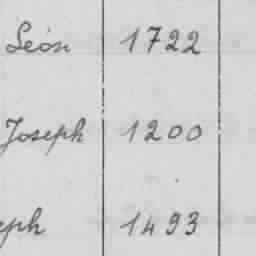 Léon 1722
Joseph 1200
eph 1493